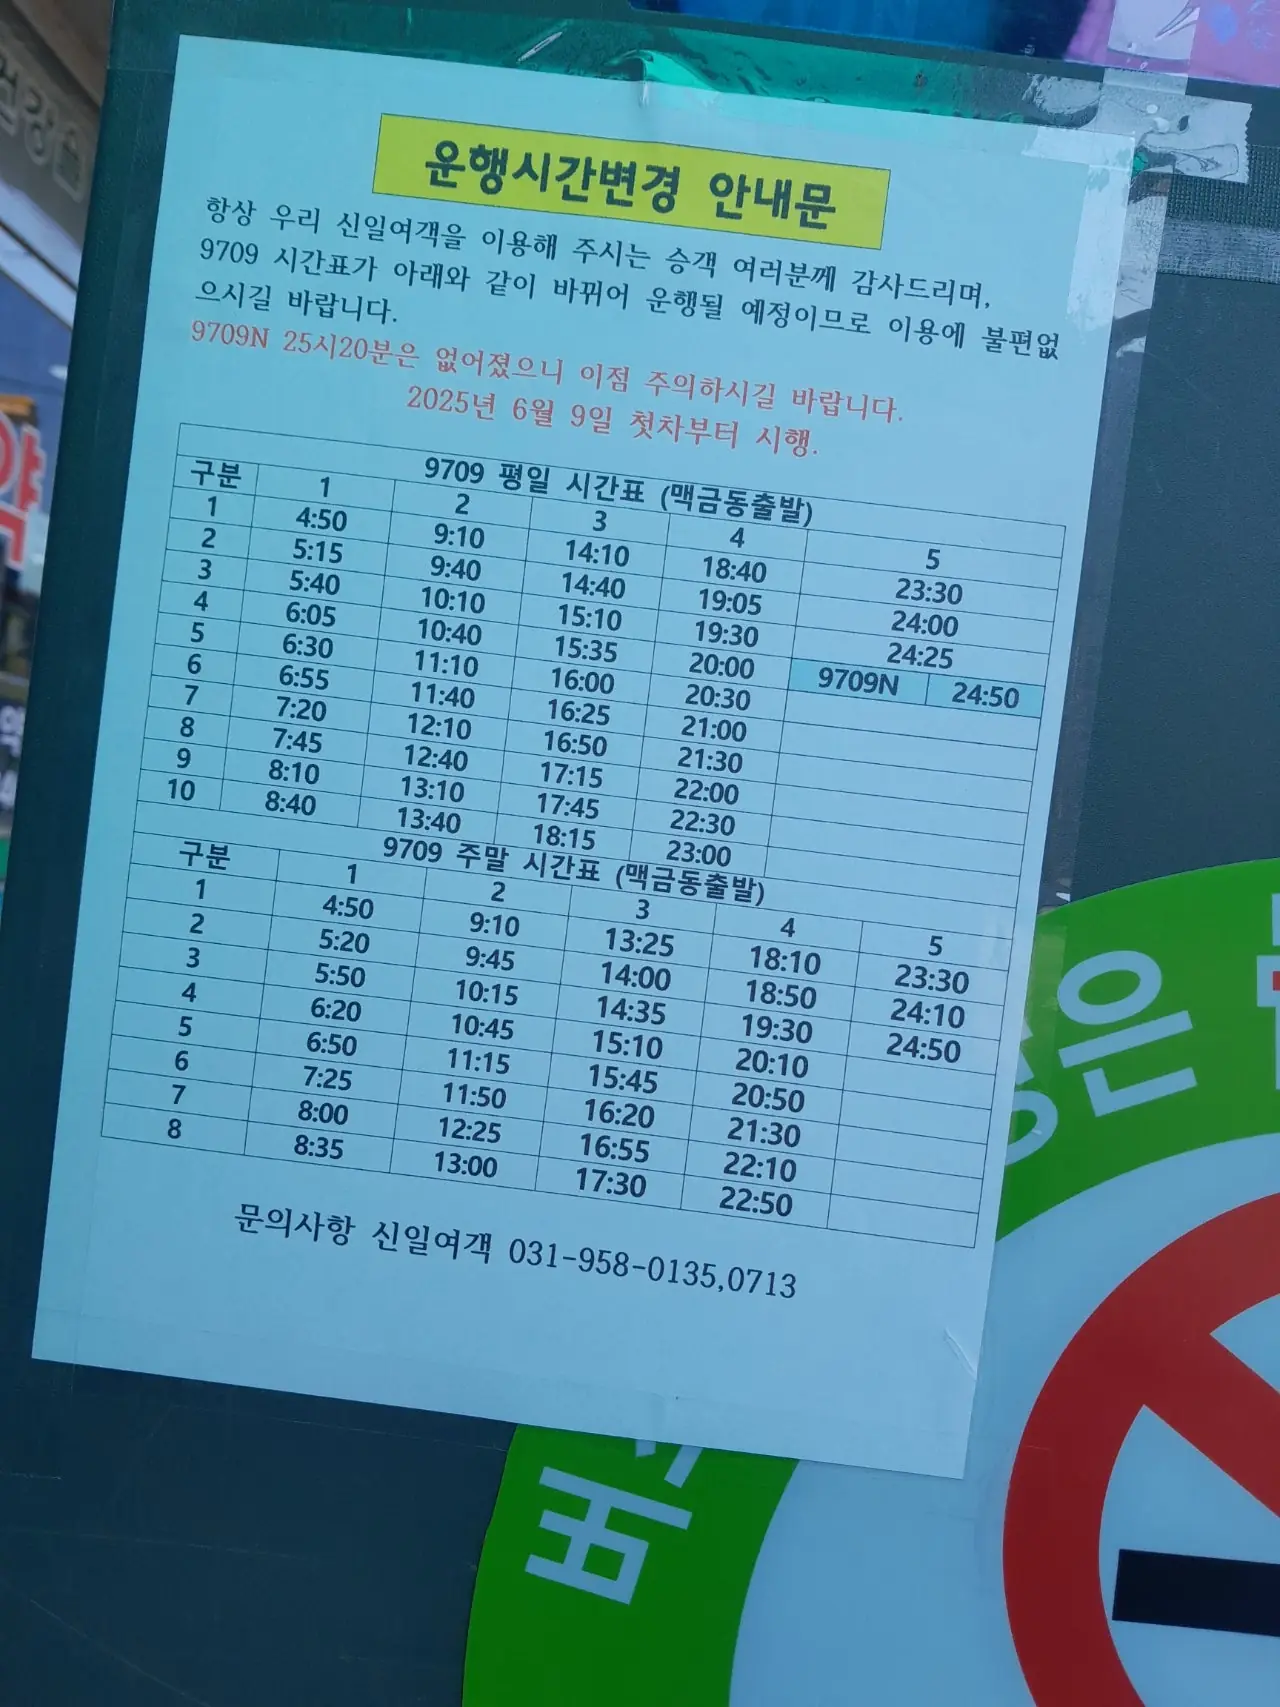 운행시간변경 안내문
항상 우리 신일여객을 이용해 주시는 승객 여러분께 감사드리며,
9709 시간표가 아래와 같이 바뀌어 운행될 예정이므로 이용에 불편없
으시길 바랍니다.
9709N 25시20분은 없어졌으니 이점 주의하시길 바랍니다.
2025년 6월 9일 첫차부터 시행.
9709 평일 시간표 (맥금동출발)
구분 1 2 3 4 5
1 4:50 9:10 14:10 18:40 23:30
2 5:15 9:40 14:40 19:05 24:00
3 5:40 10:10 15:10 19:30 24:25
4 6:05 10:40 15:35 20:00 9709N 24:50
5 6:30 11:10 16:00 20:30
6 6:55 11:40 16:25 21:00
7 7:20 12:10 16:50 21:30
8 7:45 12:40 17:15 22:00
9 8:10 13:10 17:45 22:30
10 8:40 13:40 18:15 23:00
9709 주말 시간표 (맥금동출발)
구분 1 2 3 4 5
1 4:50 9:10 13:25 18:10 23:30
2 5:20 9:45 14:00 18:50 24:10
3 5:50 10:15 14:35 19:30 24:50
4 6:20 10:45 15:10 20:10
5 6:50 11:15 15:45 20:50
6 7:25 11:50 16:20 21:30
7 8:00 12:25 16:55 22:10
8 8:35 13:00 17:30 22:50
문의사항 신일여객 031-958-0135,0713
은